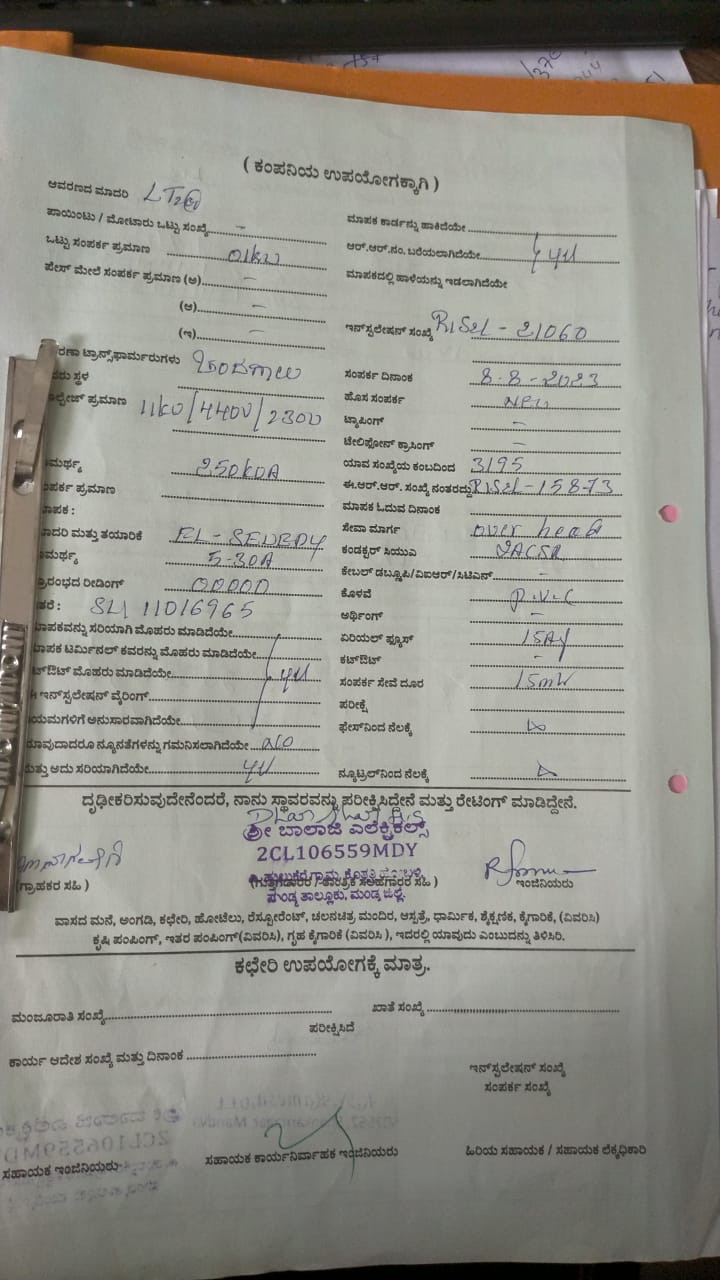 ( ಕಂಪನಿಯ ಉಪಯೋಗಕ್ಕಾಗಿ )
ಆವರಣದ ಮಾದರಿ LT2
ಪಾಯಿಂಟು / ಮೋಟಾರು ಒಟ್ಟು ಸಂಖ್ಯೆ -
ಮಾಪಕ ಕಾರ್ಡನ್ನು ಹಾಕಿದೆಯೇ
ಒಟ್ಟು ಸಂಪರ್ಕ ಪ್ರಮಾಣ 01KW
ಆರ್.ಆರ್.ನಂ. ಬರೆಯಲಾಗಿದೆಯೇ
ಫೇಸ್ ಮೇಲೆ ಸಂಪರ್ಕ ಪ್ರಮಾಣ (ಅ) -
ಮಾಪಕದಲ್ಲಿ ಹಾಳೆಯನ್ನು ಇಡಲಾಗಿದೆಯೇ
(ಆ) -
(ಇ) -
ಇನ್‌ಸ್ಟಲೇಷನ್ ಸಂಖ್ಯೆ - 21060
ರಣಾ ಟ್ರಾನ್ಸ್‌ಫಾರ್ಮರುಗಳು
ಸಂಪರ್ಕ ದಿನಾಂಕ 8-8-2023
ರು ಸ್ಥಳ
ಹೊಸ ಸಂಪರ್ಕ New
ಪ್ರಮಾಣ 11KV/440V/230V
ಟ್ಯಾಪಿಂಗ್ -
ಟೆಲಿಫೋನ್ ಕ್ರಾಸಿಂಗ್ -
ಮರ್ಥ್ಯ 250KVA
ಯಾವ ಸಂಖ್ಯೆಯ ಕಂಬದಿಂದ 3195
ಂಪರ್ಕ ಪ್ರಮಾಣ
ಈ.ಆರ್.ಆರ್. ಸಂಖ್ಯೆ ನಂತರದ್ದು - 15873
ಾಪಕ :
ಮಾಪಕ ಓದುವ ದಿನಾಂಕ
ಾದರಿ ಮತ್ತು ತಯಾರಿಕೆ
ಸೇವಾ ಮಾರ್ಗ over head
ಮರ್ಥ್ಯ 5-30A
ಕಂಡಕ್ಟರ್ ಸಿಯುಎ
ಪ್ರಾರಂಭದ ರೀಡಿಂಗ್ 00000
ಕೇಬಲ್ ಡಬ್ಲ್ಯೂಪಿ/ವಿಐಆರ್/ಸಿಟಿಎಸ್ -
ಕೊಳವೆ P.V.C
SL 11016965
ಅರ್ಥಿಂಗ್ -
ಾಪಕವನ್ನು ಸರಿಯಾಗಿ ಮೊಹರು ಮಾಡಿದೆಯೇ
ಏರಿಯಲ್ ಫ್ಯೂಸ್
ಾಪಕ ಟರ್ಮಿನಲ್ ಕವರನ್ನು ಮೊಹರು ಮಾಡಿದೆಯೇ
ಕಟ್‌ಔಟ್ -
ಟ್‌ಔಟ್ ಮೊಹರು ಮಾಡಿದೆಯೇ
ಸಂಪರ್ಕ ಸೇವೆ ದೂರ
ಇನ್‌ಸ್ಟಲೇಷನ್ ವೈರಿಂಗ್
ಪರೀಕ್ಷೆ
ಯಮಗಳಿಗೆ ಅನುಸಾರವಾಗಿದೆಯೇ
ಫೇಸ್‌ನಿಂದ ನೆಲಕ್ಕೆ
ಾವುದಾದರೂ ನ್ಯೂನತೆಗಳನ್ನು ಗಮನಿಸಲಾಗಿದೆಯೇ NO
ಮತ್ತು ಅದು ಸರಿಯಾಗಿದೆಯೇ
ನ್ಯೂಟ್ರಲ್‌ನಿಂದ ನೆಲಕ್ಕೆ
ದೃಢೀಕರಿಸುವುದೇನೆಂದರೆ, ನಾನು ಸ್ಥಾವರವನ್ನು ಪರೀಕ್ಷಿಸಿದ್ದೇನೆ ಮತ್ತು ರೇಟಿಂಗ್ ಮಾಡಿದ್ದೇನೆ.
ಶ್ರೀ ಬಾಲಾಜಿ ಎಲೆಕ್ಟ್ರಿಕಲ್ಸ್
2CL106559MDY
(ಗ್ರಾಹಕರ ಸಹಿ )
ಇಂಜಿನಿಯರು
ಮಂಡ್ಯ ತಾಲ್ಲೂಕು, ಮಂಡ್ಯ ಜಿಲ್ಲೆ.
ವಾಸದ ಮನೆ, ಅಂಗಡಿ, ಕಛೇರಿ, ಹೋಟೆಲು, ರೆಸ್ಟೋರೆಂಟ್, ಚಲನಚಿತ್ರ ಮಂದಿರ, ಆಸ್ಪತ್ರೆ, ಧಾರ್ಮಿಕ, ಶೈಕ್ಷಣಿಕ, ಕೈಗಾರಿಕೆ, (ವಿವರಿಸಿ)
ಕೃಷಿ ಪಂಪಿಂಗ್, ಇತರ ಪಂಪಿಂಗ್(ವಿವರಿಸಿ), ಗೃಹ ಕೈಗಾರಿಕೆ (ವಿವರಿಸಿ ), ಇದರಲ್ಲಿ ಯಾವುದು ಎಂಬುದನ್ನು ತಿಳಿಸಿರಿ.
ಕಛೇರಿ ಉಪಯೋಗಕ್ಕೆ ಮಾತ್ರ.
ಮಂಜೂರಾತಿ ಸಂಖ್ಯೆ
ಖಾತೆ ಸಂಖ್ಯೆ
ಪರೀಕ್ಷಿಸಿದೆ
ಕಾರ್ಯ ಆದೇಶ ಸಂಖ್ಯೆ ಮತ್ತು ದಿನಾಂಕ
ಇನ್‌ಸ್ಟಲೇಷನ್ ಸಂಖ್ಯೆ
ಸಂಪರ್ಕ ಸಂಖ್ಯೆ
ಸಹಾಯಕ ಇಂಜಿನಿಯರು
ಸಹಾಯಕ ಕಾರ್ಯನಿರ್ವಾಹಕ ಇಂಜಿನಿಯರು
ಹಿರಿಯ ಸಹಾಯಕ / ಸಹಾಯಕ ಲೆಕ್ಕಧಿಕಾರಿ